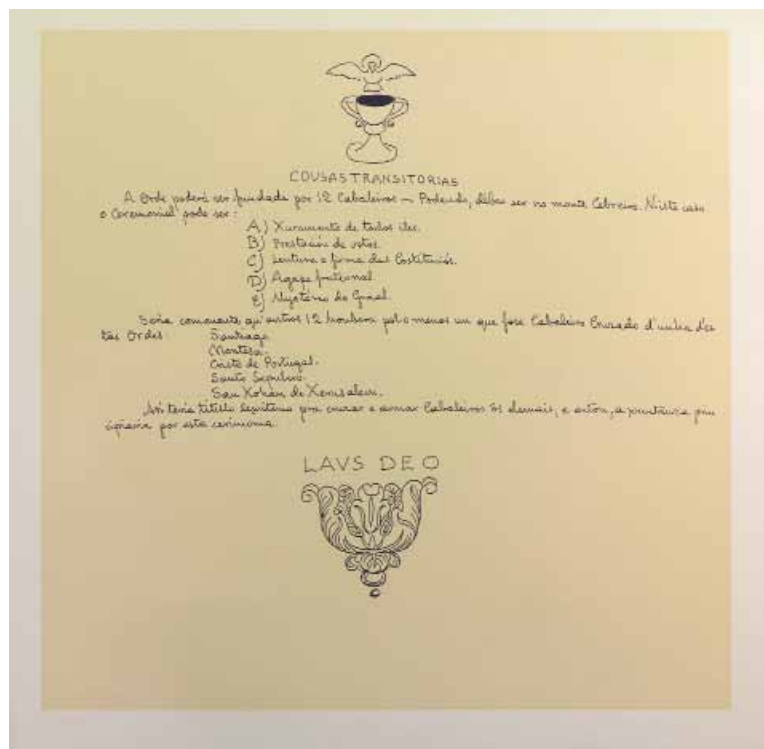 COUSAS TRANSITORIAS
A Orde poderá ser fundada por 12 Cabaleiros — Podendo, débea ser no monte Cebreiro. Niste caso
o Ceremonial pode ser:
A) Xuramento de todos iles.
B) Prestación de votos.
C) Leutura e firma das Costituciós.
D) Agape fraternal.
E) Mysterio do Graal.
Soña comenente qu'antros 12 houbera pol-o menos un que fose Cabaleiro Cruzado d'unha des
tas Ordes:
Santiago.
Montesa.
Cristo de Portugal.
Santo Sepulcro.
San Xohán de Xerusalem.
Así tería título lexítimo pra cruzar e armar Cabaleiros ôs demais, e antón, a xuntanza prin
cipiaría por esta cerimonia.
LAVS DEO